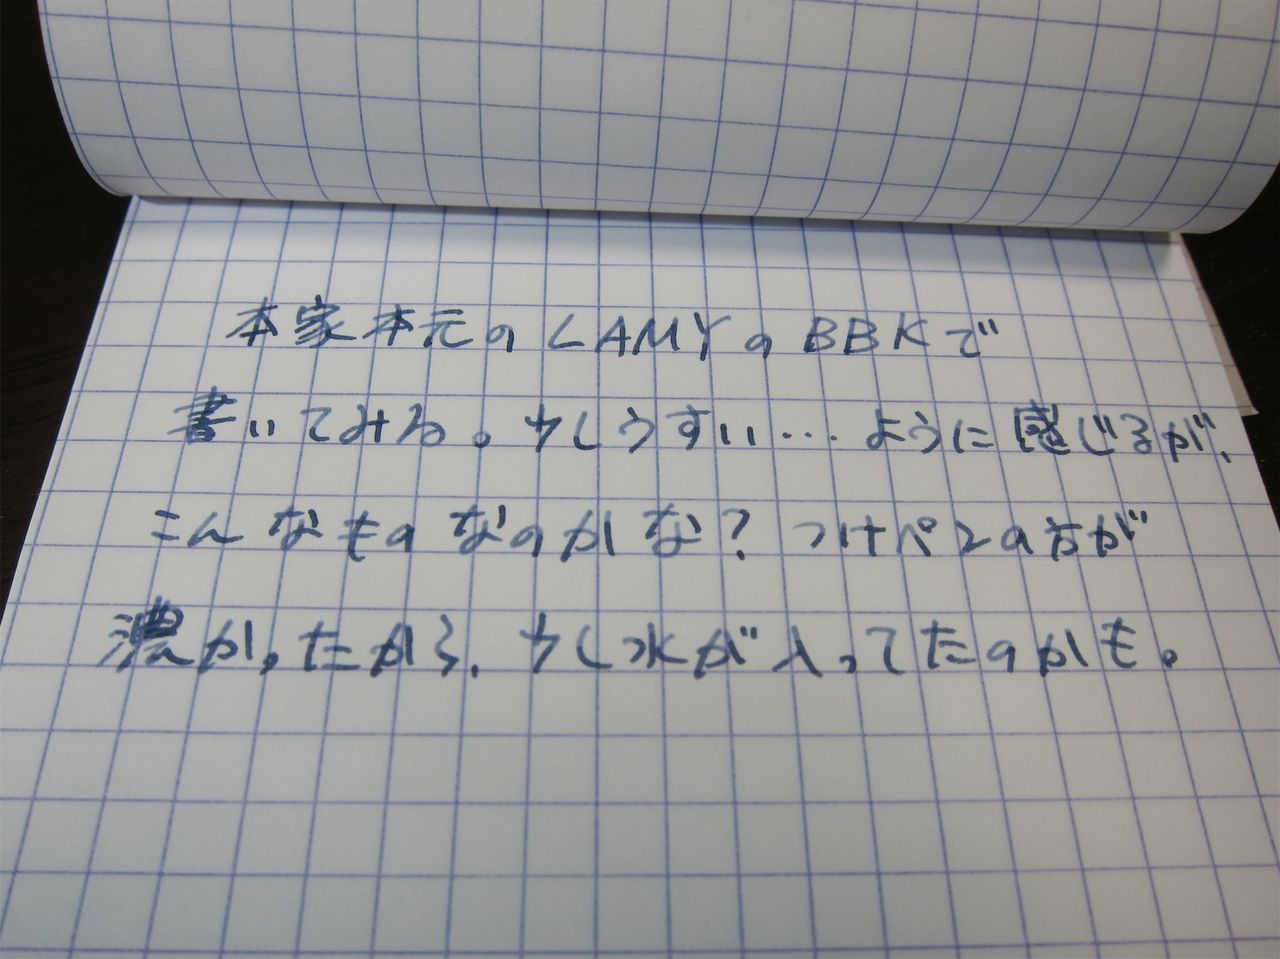 本家本元のLAMYのBBKで
書いてみる。少しうすい…ように感じるが、
こんなものなのかな？つけペンの方が
濃かったから、少し水が入ってたのかも。